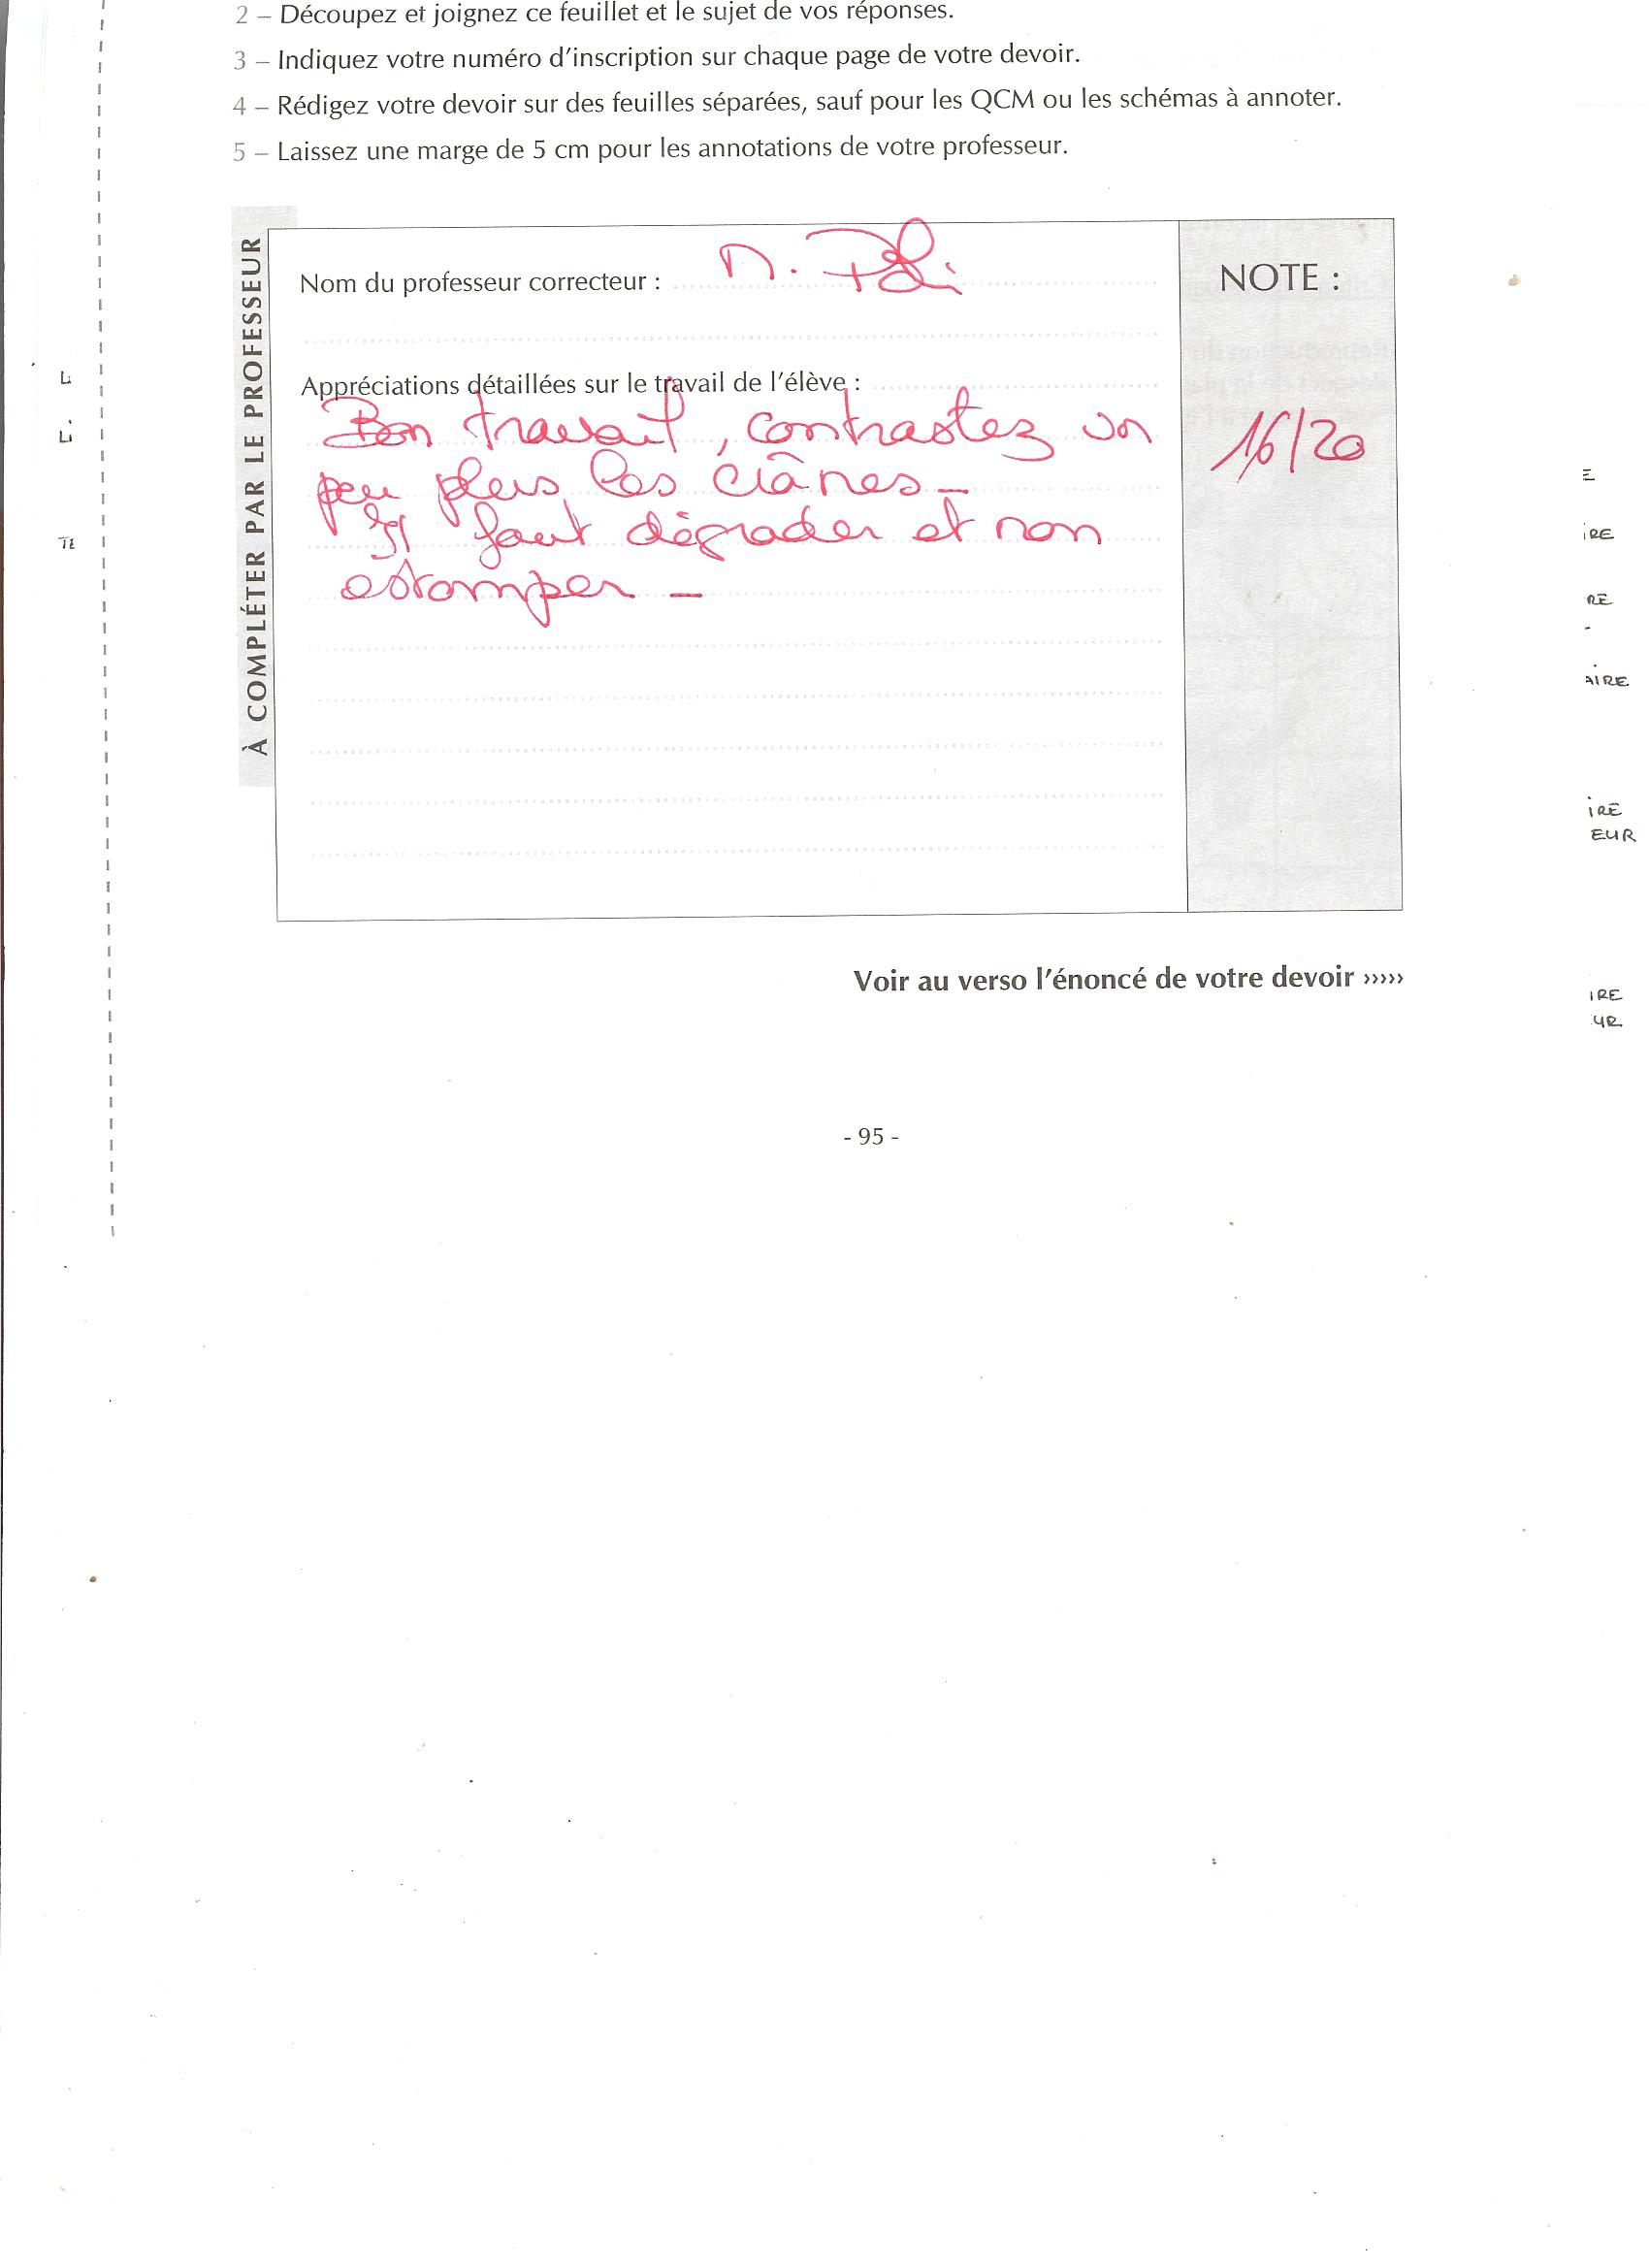 2 – Découpez et joignez ce feuillet et le sujet de vos réponses.
3 – Indiquez votre numéro d'inscription sur chaque page de votre devoir.
4 – Rédigez votre devoir sur des feuilles séparées, sauf pour les QCM ou les schémas à annoter.
5 – Laissez une marge de 5 cm pour les annotations de votre professeur.
À COMPLÉTER PAR LE PROFESSEUR
Nom du professeur correcteur :
NOTE :
Appréciations détaillées sur le travail de l'élève :
Bon travail, contrastez un
peu plus les crânes –
Il faut dégrader et non
estomper –
16/20
Voir au verso l'énoncé de votre devoir ›››››
- 95 -
IRE
RE
AIRE
IRE
EUR
IRE
UR